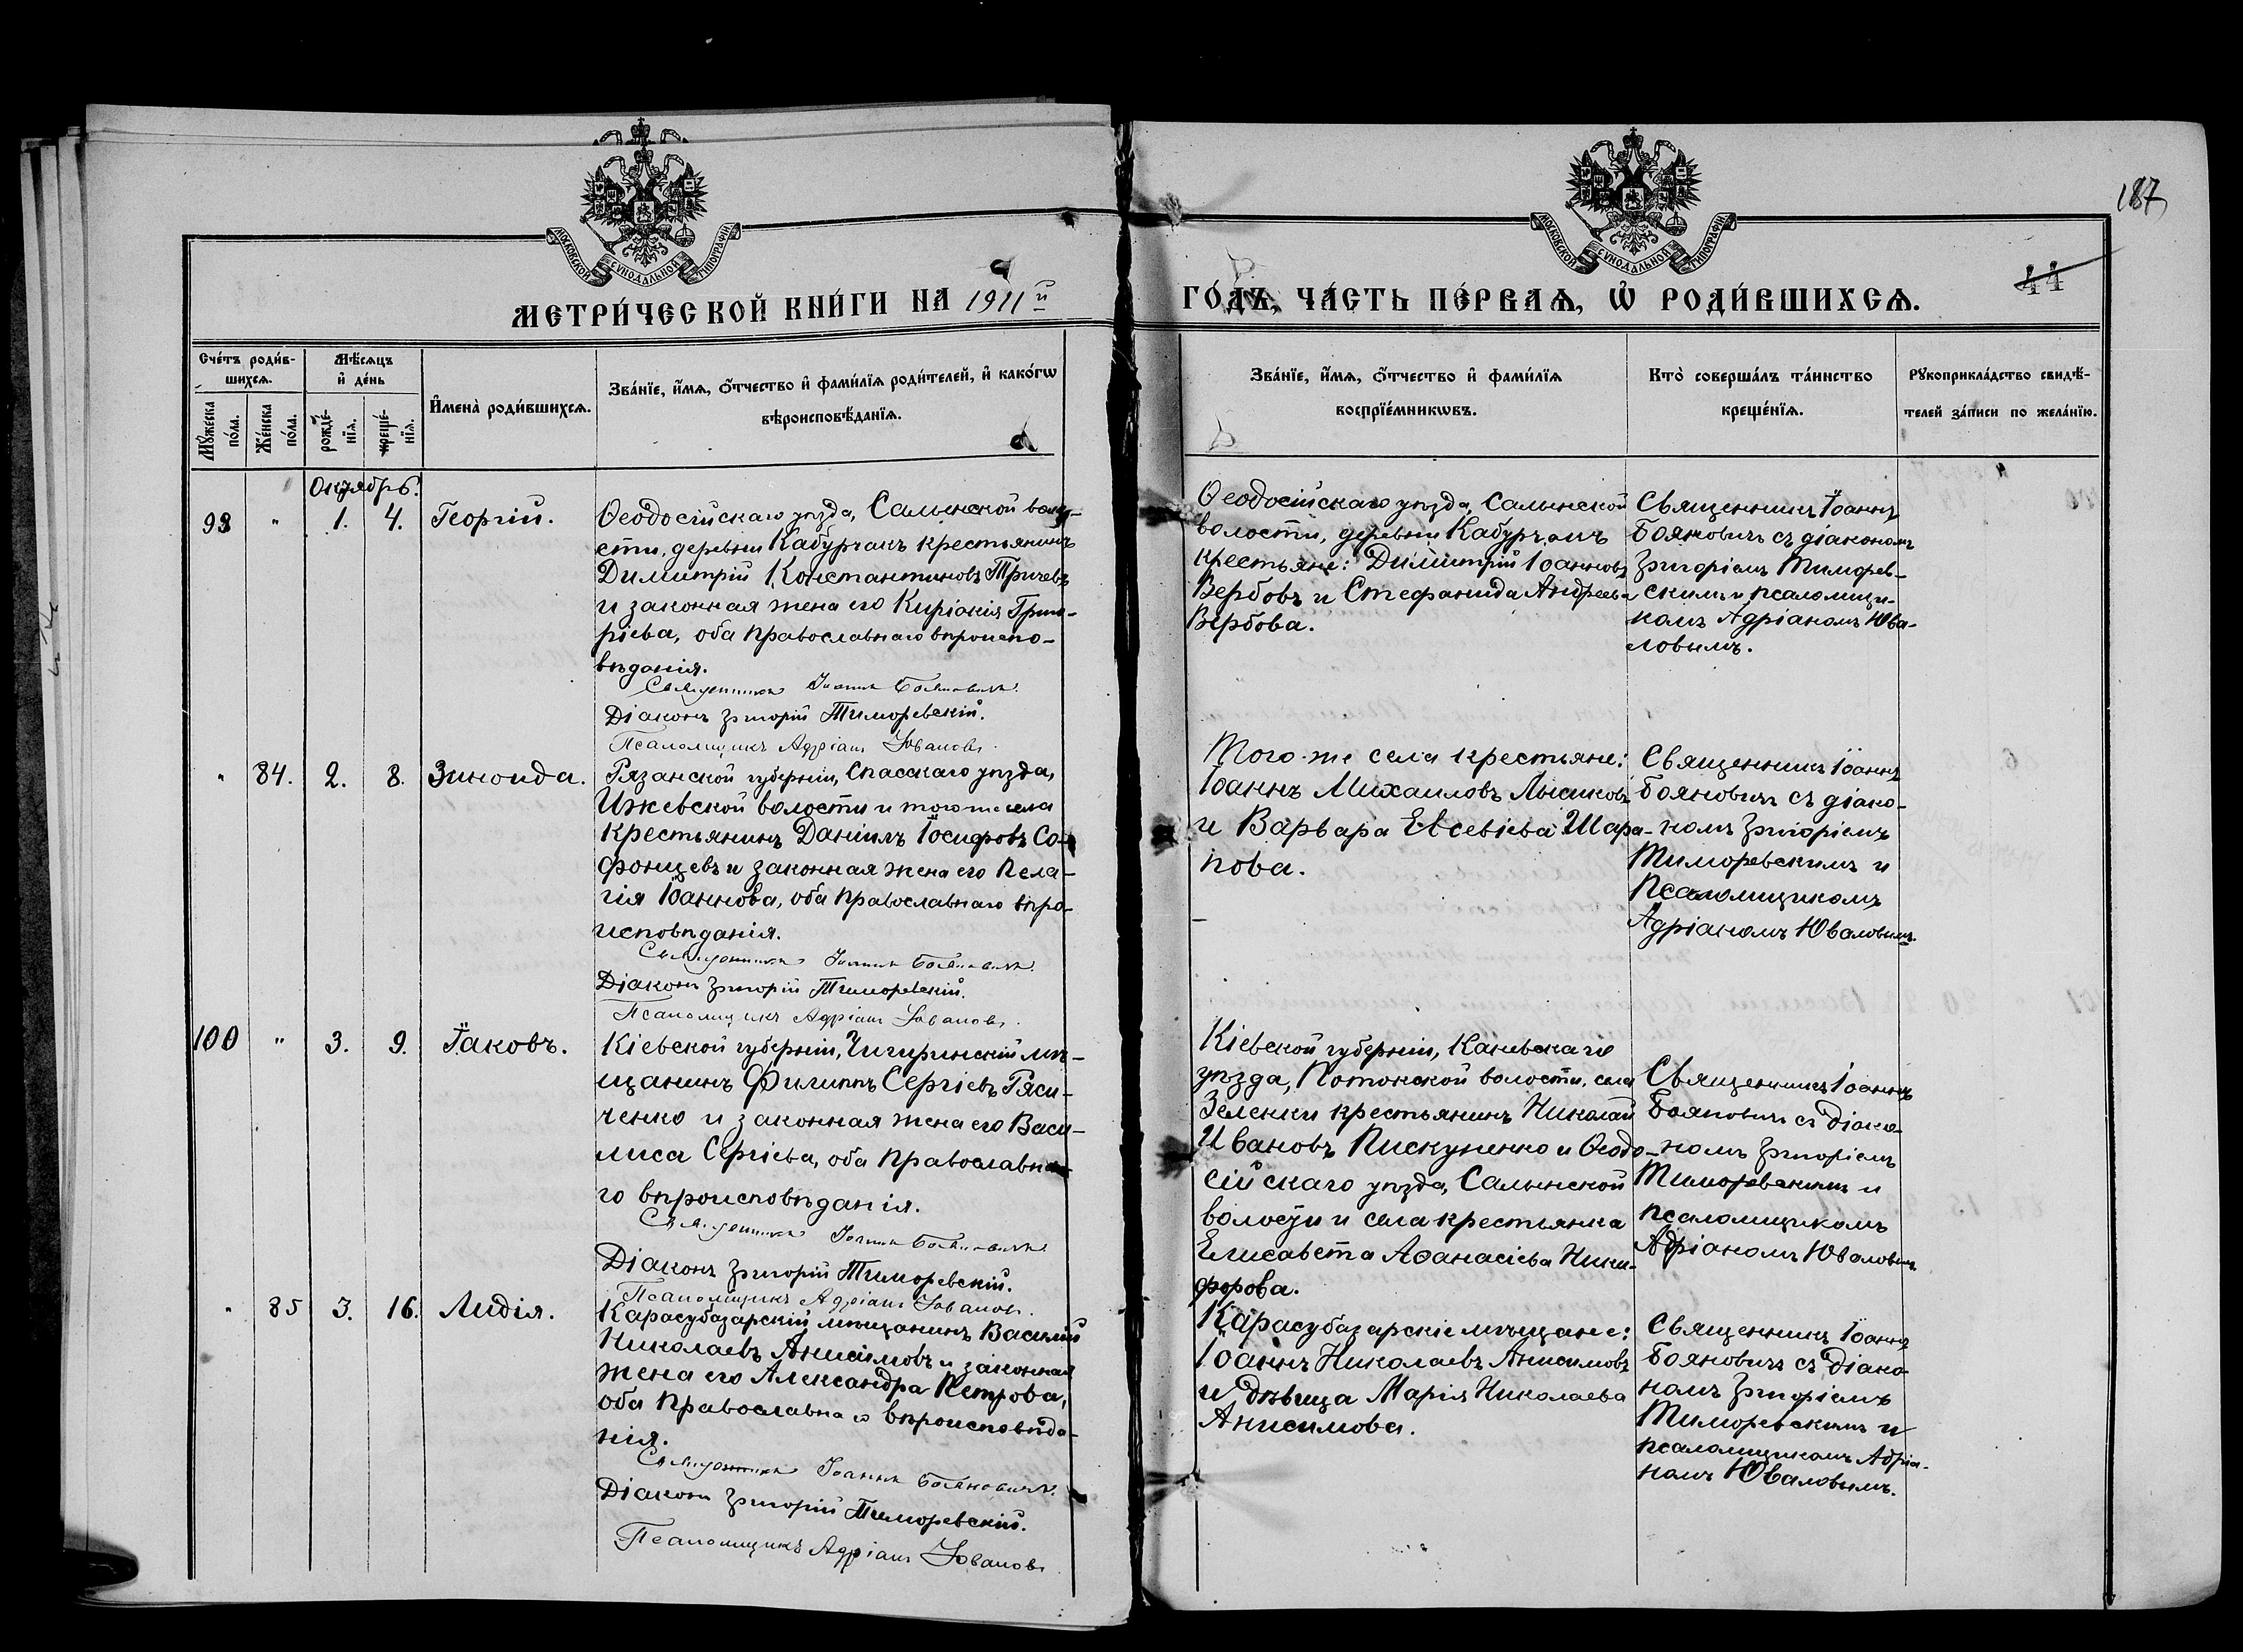 187
44
МОСКОВСКОЙ СѴНОДАЛЬНОЙ ТИПОГРАФІИ
МОСКОВСКОЙ СѴНОДАЛЬНОЙ ТИПОГРАФІИ
МЕТРИ́ЧЕСКОЙ КНИ́ГИ НА 1911й
ГО́ДЪ, ЧА́СТЬ ПЕ́РВАѦ, Ѡ҆ РОДИ́ВШИХСѦ.
Сче́тъ роди́в-
шихсѧ.
Мꙋ́жеска по́ла.
Же́нска по́ла.
Мѣ́сѧцъ
и҆ де́нь
рожде́-
нїѧ.
креще́-
нїѧ.
И҆мена̀ роди́вшихсѧ.
Зва́нїе, и҆́мѧ, ѻ҆́тчество и҆ фами́лїѧ роди́телей, и҆ како́гѡ
вѣроисповѣ́данїѧ.
Зва́нїе, и҆́мѧ, ѻ҆́тчество и҆ фами́лїѧ
воспрїе́мникѡвъ.
Кто̀ соверша́лъ та́инство
креще́нїѧ.
Рꙋкоприкла́дство свидѣ́-
телей за́писи по жела́нїю.
Октябрь.
99 " 1. 4. Георгій.
Ѳеодосійскаго уѣзда, Салынской воло-
сти, деревни Кабурчакъ крестьянинъ
Димитрій Константиновъ Тричевъ
и законная жена его Киріакія Григо-
ріева, оба православнаго вѣроиспо-
вѣданія.
Священникъ Іоаннъ Бояновичъ.
Діаконъ Григорій Тиморевскій.
Псаломщикъ Адріанъ Юваловъ.
Ѳеодосійскаго уѣзда, Салынской
волости, деревни Кабурчакъ
крестьяне: Димитрій Іоанновъ
Вербовъ и Стефанида Андреева
Вербова.
Священникъ Іоаннъ
Бояновичъ съ діакономъ
Григоріемъ Тиморев-
скимъ и псаломщи-
комъ Адріаномъ Юва-
ловымъ.
" 84. 2. 8. Зиноида.
Рязанской губерніи, Спасскаго уѣзда,
Ижевской волости и того же села
крестьянинъ Даніилъ Іосифовъ Со-
фонцевъ и законная жена его Пела-
гія Іоаннова, оба православнаго вѣро-
исповѣданія.
Священникъ Іоаннъ Бояновичъ.
Діаконъ Григорій Тиморевскій.
Псаломщикъ Адріанъ Юваловъ.
Того-же села крестьяне:
Іоаннъ Михаиловъ Лысиковъ
и Варвара Евсевіева Шара-
пова.
Священникъ Іоаннъ
Бояновичъ съ діако-
номъ Григоріемъ
Тиморевскимъ и
Псаломщикомъ
Адріаномъ Юваловымъ.
100 " 3. 9. Іаковъ.
Кіевской губерніи, Чигиринскій мѣ-
щанинъ Филиппъ Сергіевъ Ряси-
ченко и законная жена его Васи-
лиса Сергіева, оба православна-
го вѣроисповѣданія.
Священникъ Іоаннъ Бояновичъ.
Діаконъ Григорій Тиморевскій.
Псаломщикъ Адріанъ Юваловъ.
Кіевской губерніи, Каневскаго
уѣзда, Потокской волости, села
Зеленки крестьянинъ Николай
Ивановъ Пискуненко и Ѳеодо-
сійскаго уѣзда, Салынской
волости и села крестьянка
Елисавета Аѳанасіева Ники-
форова.
Священникъ Іоаннъ
Бояновичъ съ діако-
номъ Григоріемъ
Тиморевскимъ и
псаломщикомъ
Адріаномъ Юваловымъ
" 85 3. 16. Лидія.
Карасубазарскій мѣщанинъ Василій
Николаевъ Анисимовъ и законная
жена его Александра Петрова,
оба православнаго вѣроисповѣда-
нія.
Священникъ Іоаннъ Бояновичъ.
Діаконъ Григорій Тиморевскій.
Псаломщикъ Адріанъ Юваловъ
Карасубазарскіе мѣщане:
Іоаннъ Николаевъ Анисимовъ
и дѣвица Марія Николаева
Анисимова.
Священникъ Іоаннъ
Бояновичъ съ діако-
номъ Григоріемъ
Тиморевскимъ и
псаломщикомъ Адріа-
номъ Юваловымъ.